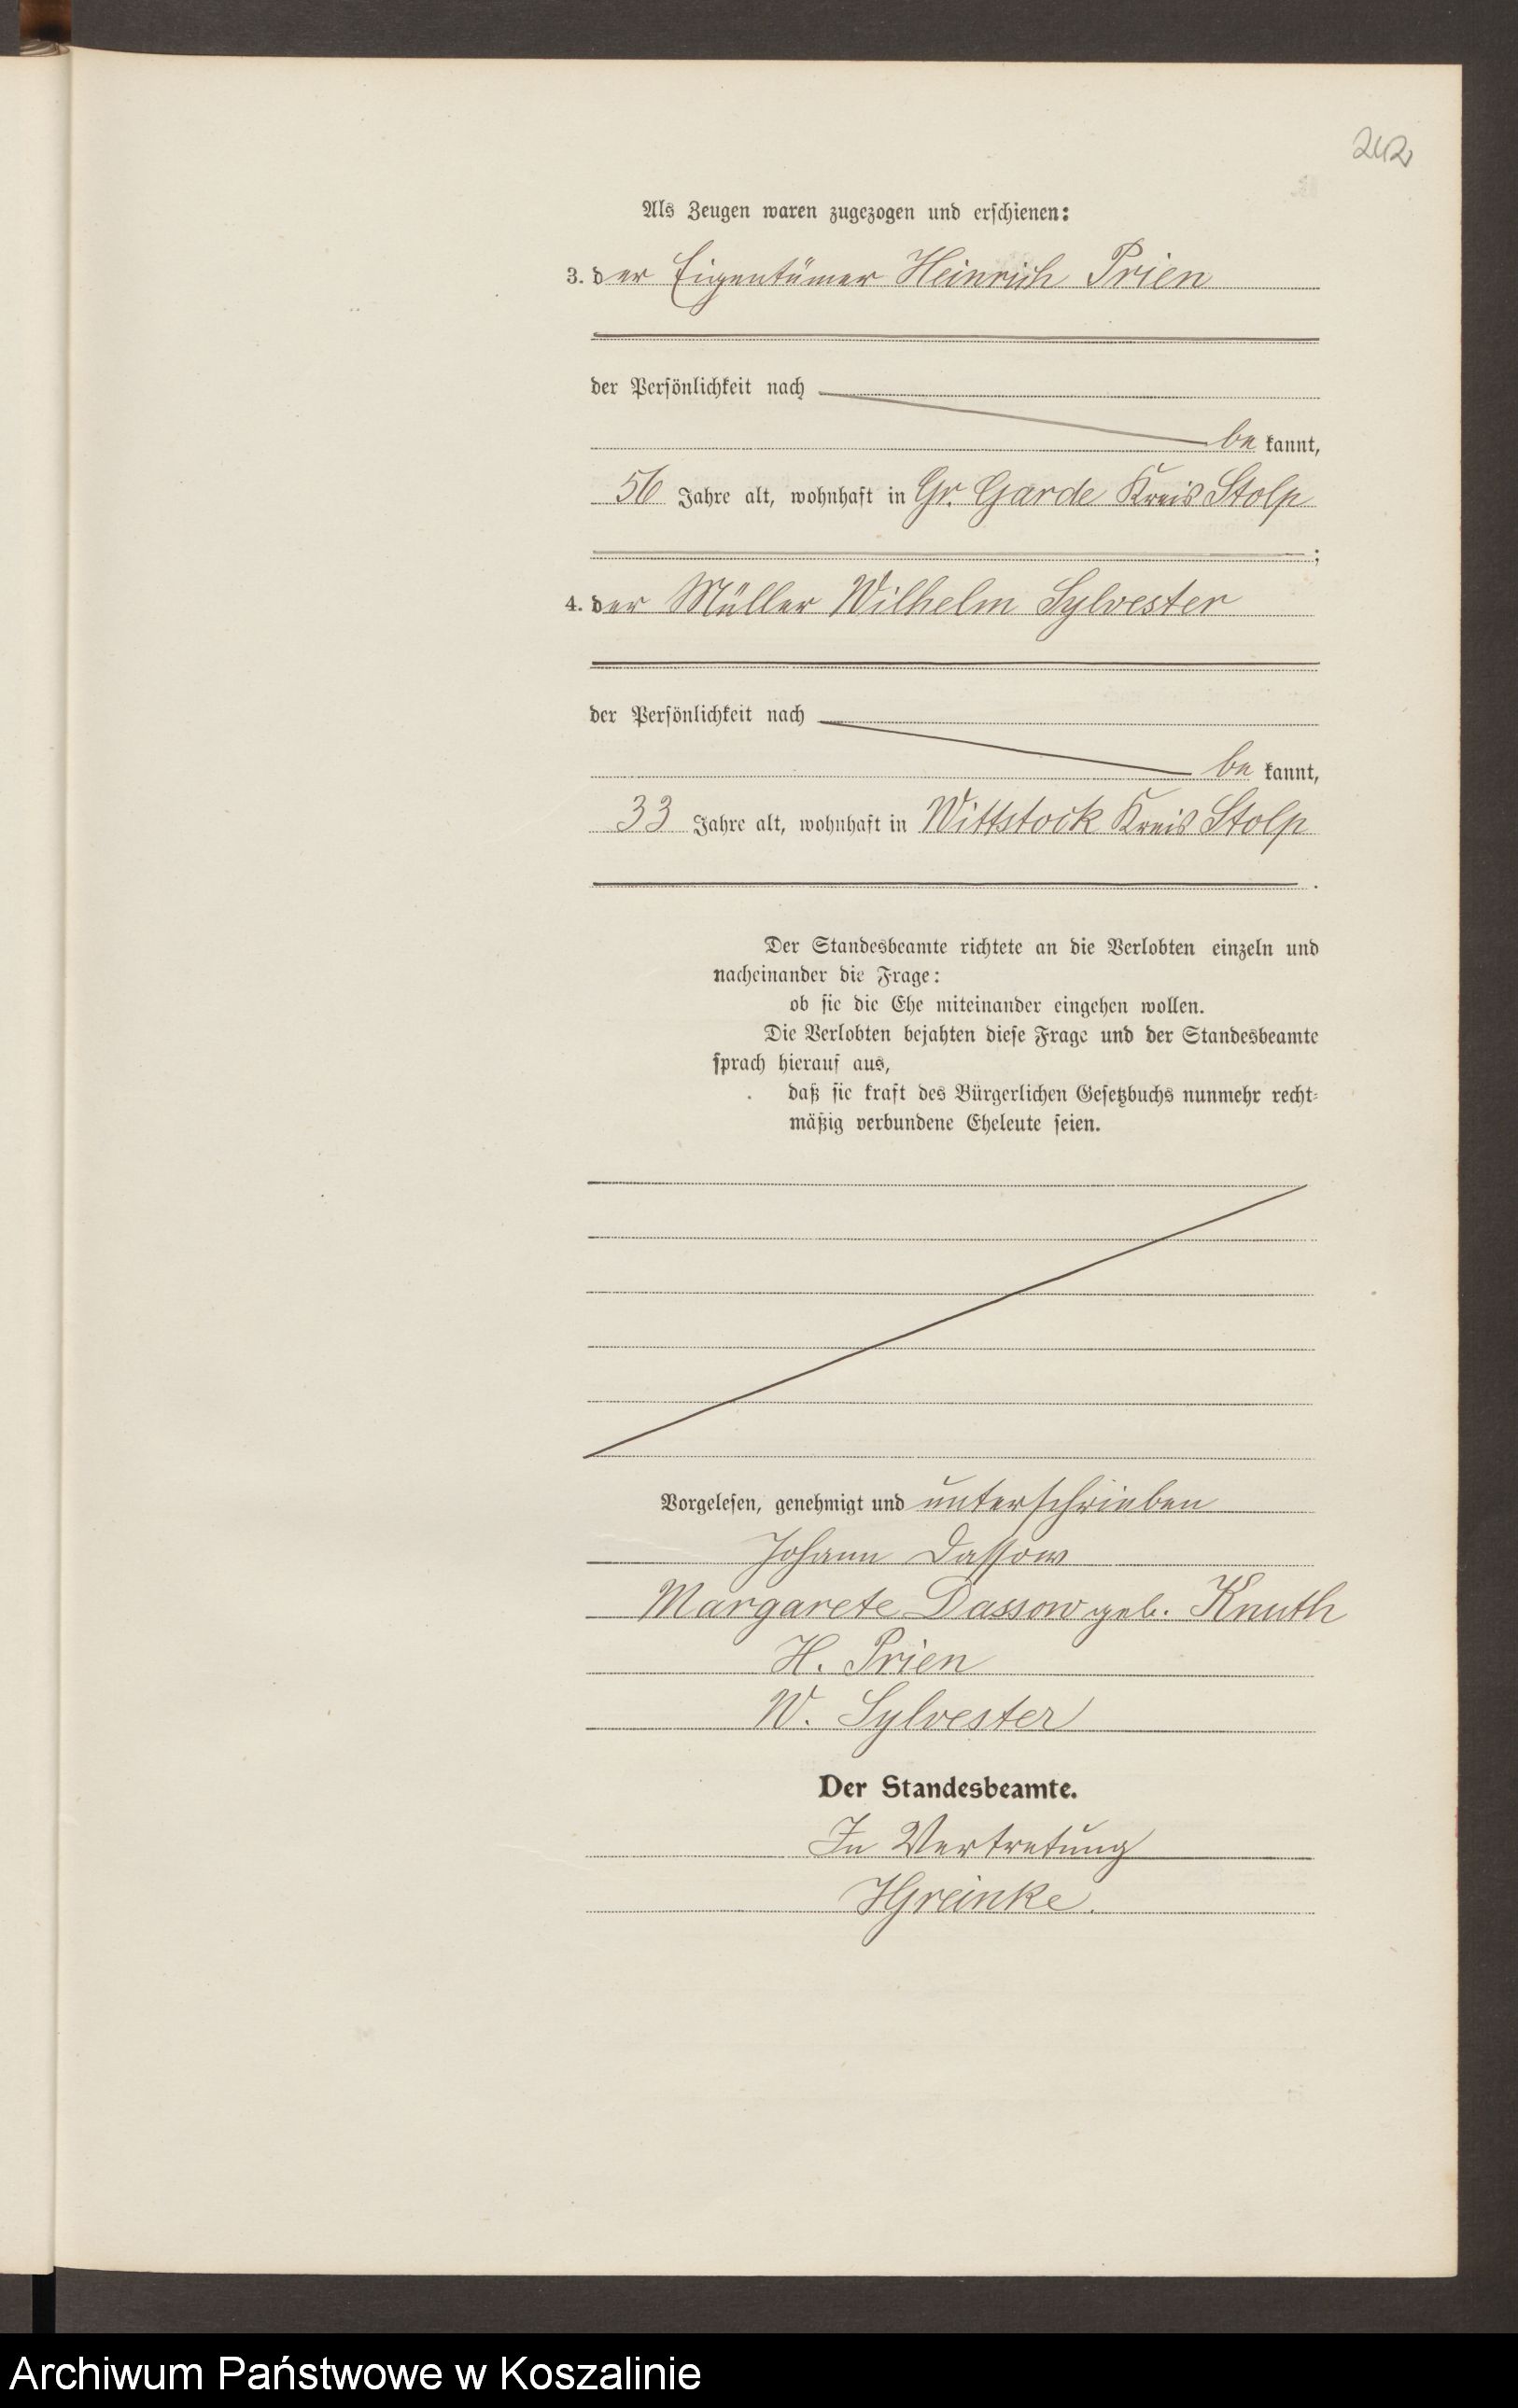 242
Als Zeugen waren zugezogen und erschienen:
3. der Eigentümer Heinrich Prien
der Persönlichkeit nach
be kannt,
56 Jahre alt, wohnhaft in Gr. Garde Kreis Stolp
;
4. der Müller Wilhelm Sylvester
der Persönlichkeit nach
be kannt,
33 Jahre alt, wohnhaft in Wittstock Kreis Stolp
.
Der Standesbeamte richtete an die Verlobten einzeln und
nacheinander die Frage:
ob sie die Ehe miteinander eingehen wollen.
Die Verlobten bejahten diese Frage und der Standesbeamte
sprach hierauf aus,
daß sie kraft des Bürgerlichen Gesetzbuchs nunmehr recht-
mäßig verbundene Eheleute seien.
Vorgelesen, genehmigt und unterschrieben
Johann Dassow
Margarete Dassow geb. Knuth
H. Prien
W. Sylvester
Der Standesbeamte.
In Vertretung
HGreinke.
Archiwum Państwowe w Koszalinie